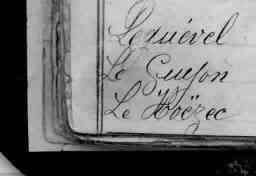 Penuével
Le Guyon
Le Hoëzec